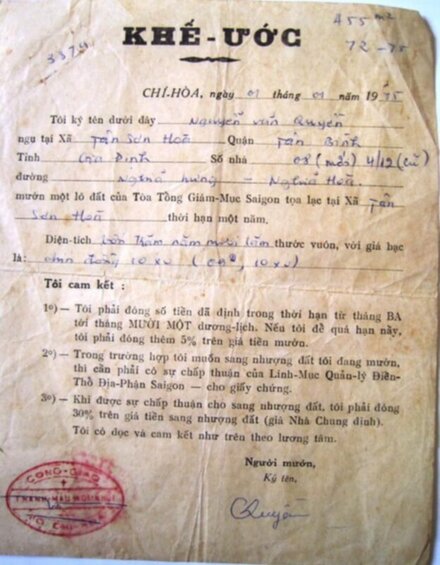 455 m2
KHẾ-ƯỚC
72-75
3379
CHÍ-HÒA, ngày 01 tháng 01 năm 1975
Tôi ký tên dưới đây Nguyễn văn Quyền
ngụ tại Xã Tân Sơn Hoà Quận Tân Bình
Tỉnh Gia Định Số nhà 08 (mới) 4/12 (cũ)
đường Nghĩa hưng – Nghĩa Hoà.
mướn một lô đất của Tòa Tổng Giám-Mục Saigon tọa lạc tại Xã Tân
Sơn Hoà thời hạn một năm.
Diện-tích bốn trăm năm mươi lăm thước vuôn, với giá bạc
là: đồng 10 xu 10 xu)
Tôi cam kết :
1º) — Tôi phải đóng số tiền đã định trong thời hạn từ tháng BA
tới tháng MƯỜI MỘT dương-lịch. Nếu tôi để quá hạn nầy,
tôi phải đóng thêm 5% trên giá tiền mướn.
2º) — Trong trường hợp tôi muốn sang nhượng đất tôi đang mướn,
thì cần phải có sự chấp thuận của Linh-Mục Quản-lý Điền-
Thổ Địa-Phận Saigon — cho giấy chứng.
3º) — Khi được sự chấp thuận cho sang nhượng đất, tôi phải đóng
30% trên giá tiền sang nhượng đất (giá Nhà Chung định).
Tôi có đọc và cam kết như trên theo lương tâm.
Người mướn,
Ký tên,
CÔNG-GIÁO
Quyền